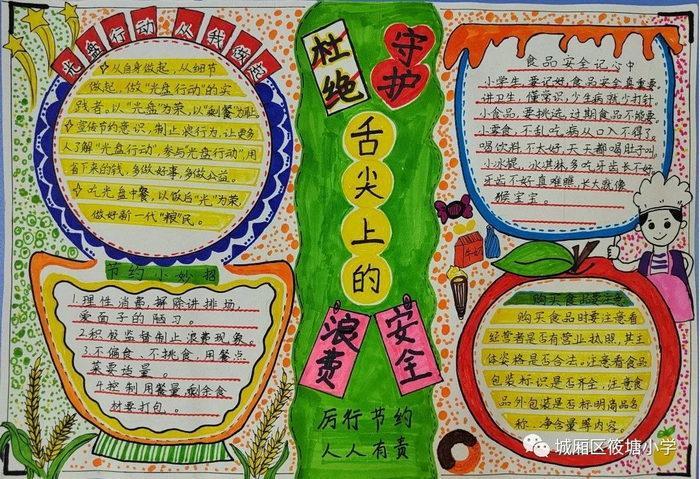 光盘行动 从我做起
☆从自身做起,从细节
做起,做"光盘行动"的实
践者。以"光盘"为荣,以"剩餐"为耻。
☆宣传节约意识,制止浪费行为,让更多
人了解"光盘行动",参与光盘行动"用
省下来的钱,多做好事,多做公益。
☆吃光盘中餐,以做后光"为荣
做好新一代"粮"民。
节约小妙招
1.理性消费,摒除讲排场,
爱面子的陋习。
2.积极监督制止浪费现象。
3.不偏食、不挑食,用餐点
菜要适量。
4.控制用餐量,剩余食
材要打包。
杜绝
守护
舌尖上的
浪费
安全
厉行节约
人人有责
食品安全记心中
小学生,要记好,食品安全真重要。
讲卫生,懂常识,少生病就少打针,
小食品,要挑选,过期食品不能要
小零食,不乱吃,病从口入不得了。
喝饮料,不太好,天天都喝肚子叫,
小冰棍,冰淇林,多吃牙齿长不好
牙齿不好真难瞧,长大就像
猴宝宝。
牛奶
购买食品要注意
购买食品时要注意看
经营者是否有营业执照,其主
体资格是否合法。注意看食品
包装标识是否齐全,注意食
品外包装是否标明商品名
称、净含量等内容。
城厢区筱塘小学